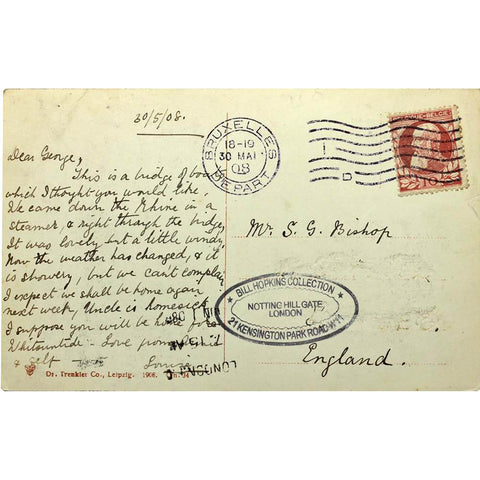 30/5/08.
Dear George,
This is a bridge of boats
which I thought you would like.
We came down the Rhine in a
steamer & right through the bridge,
It was lovely but a little windy,
Now the weather has changed, & it
is showery, but we can't complain
I expect we shall be home again
next week, Uncle is homesick
I suppose you will be home for
Whitsuntide - Love from
self
Dr. Trenkler Co., Leipzig. 1906.
BRUXELLES
18-19
30 MAI
08
DEPART
BELGE
10
Mr. S. G. Bishop
BILL HOPKINS COLLECTION
NOTTING HILL GATE,
LONDON
21 KENSINGTON PARK ROAD W11
England.
LONDON
7.15 AM